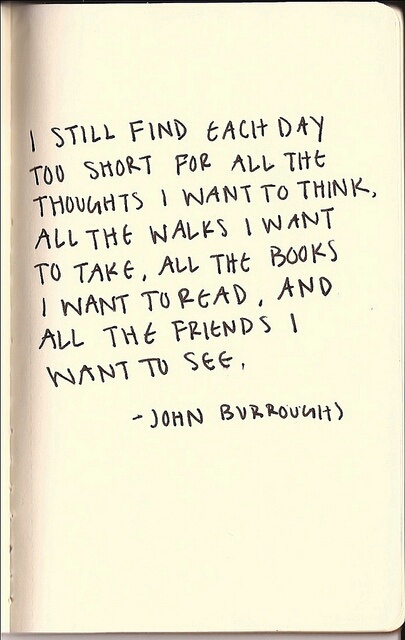 I STILL FIND EACH DAY
TOO SHORT FOR ALL THE
THOUGHTS I WANT TO THINK,
ALL THE WALKS I WANT
TO TAKE, ALL THE BOOKS
I WANT TO READ, AND
ALL THE FRIENDS I
WANT TO SEE.
- JOHN BURROUGHS